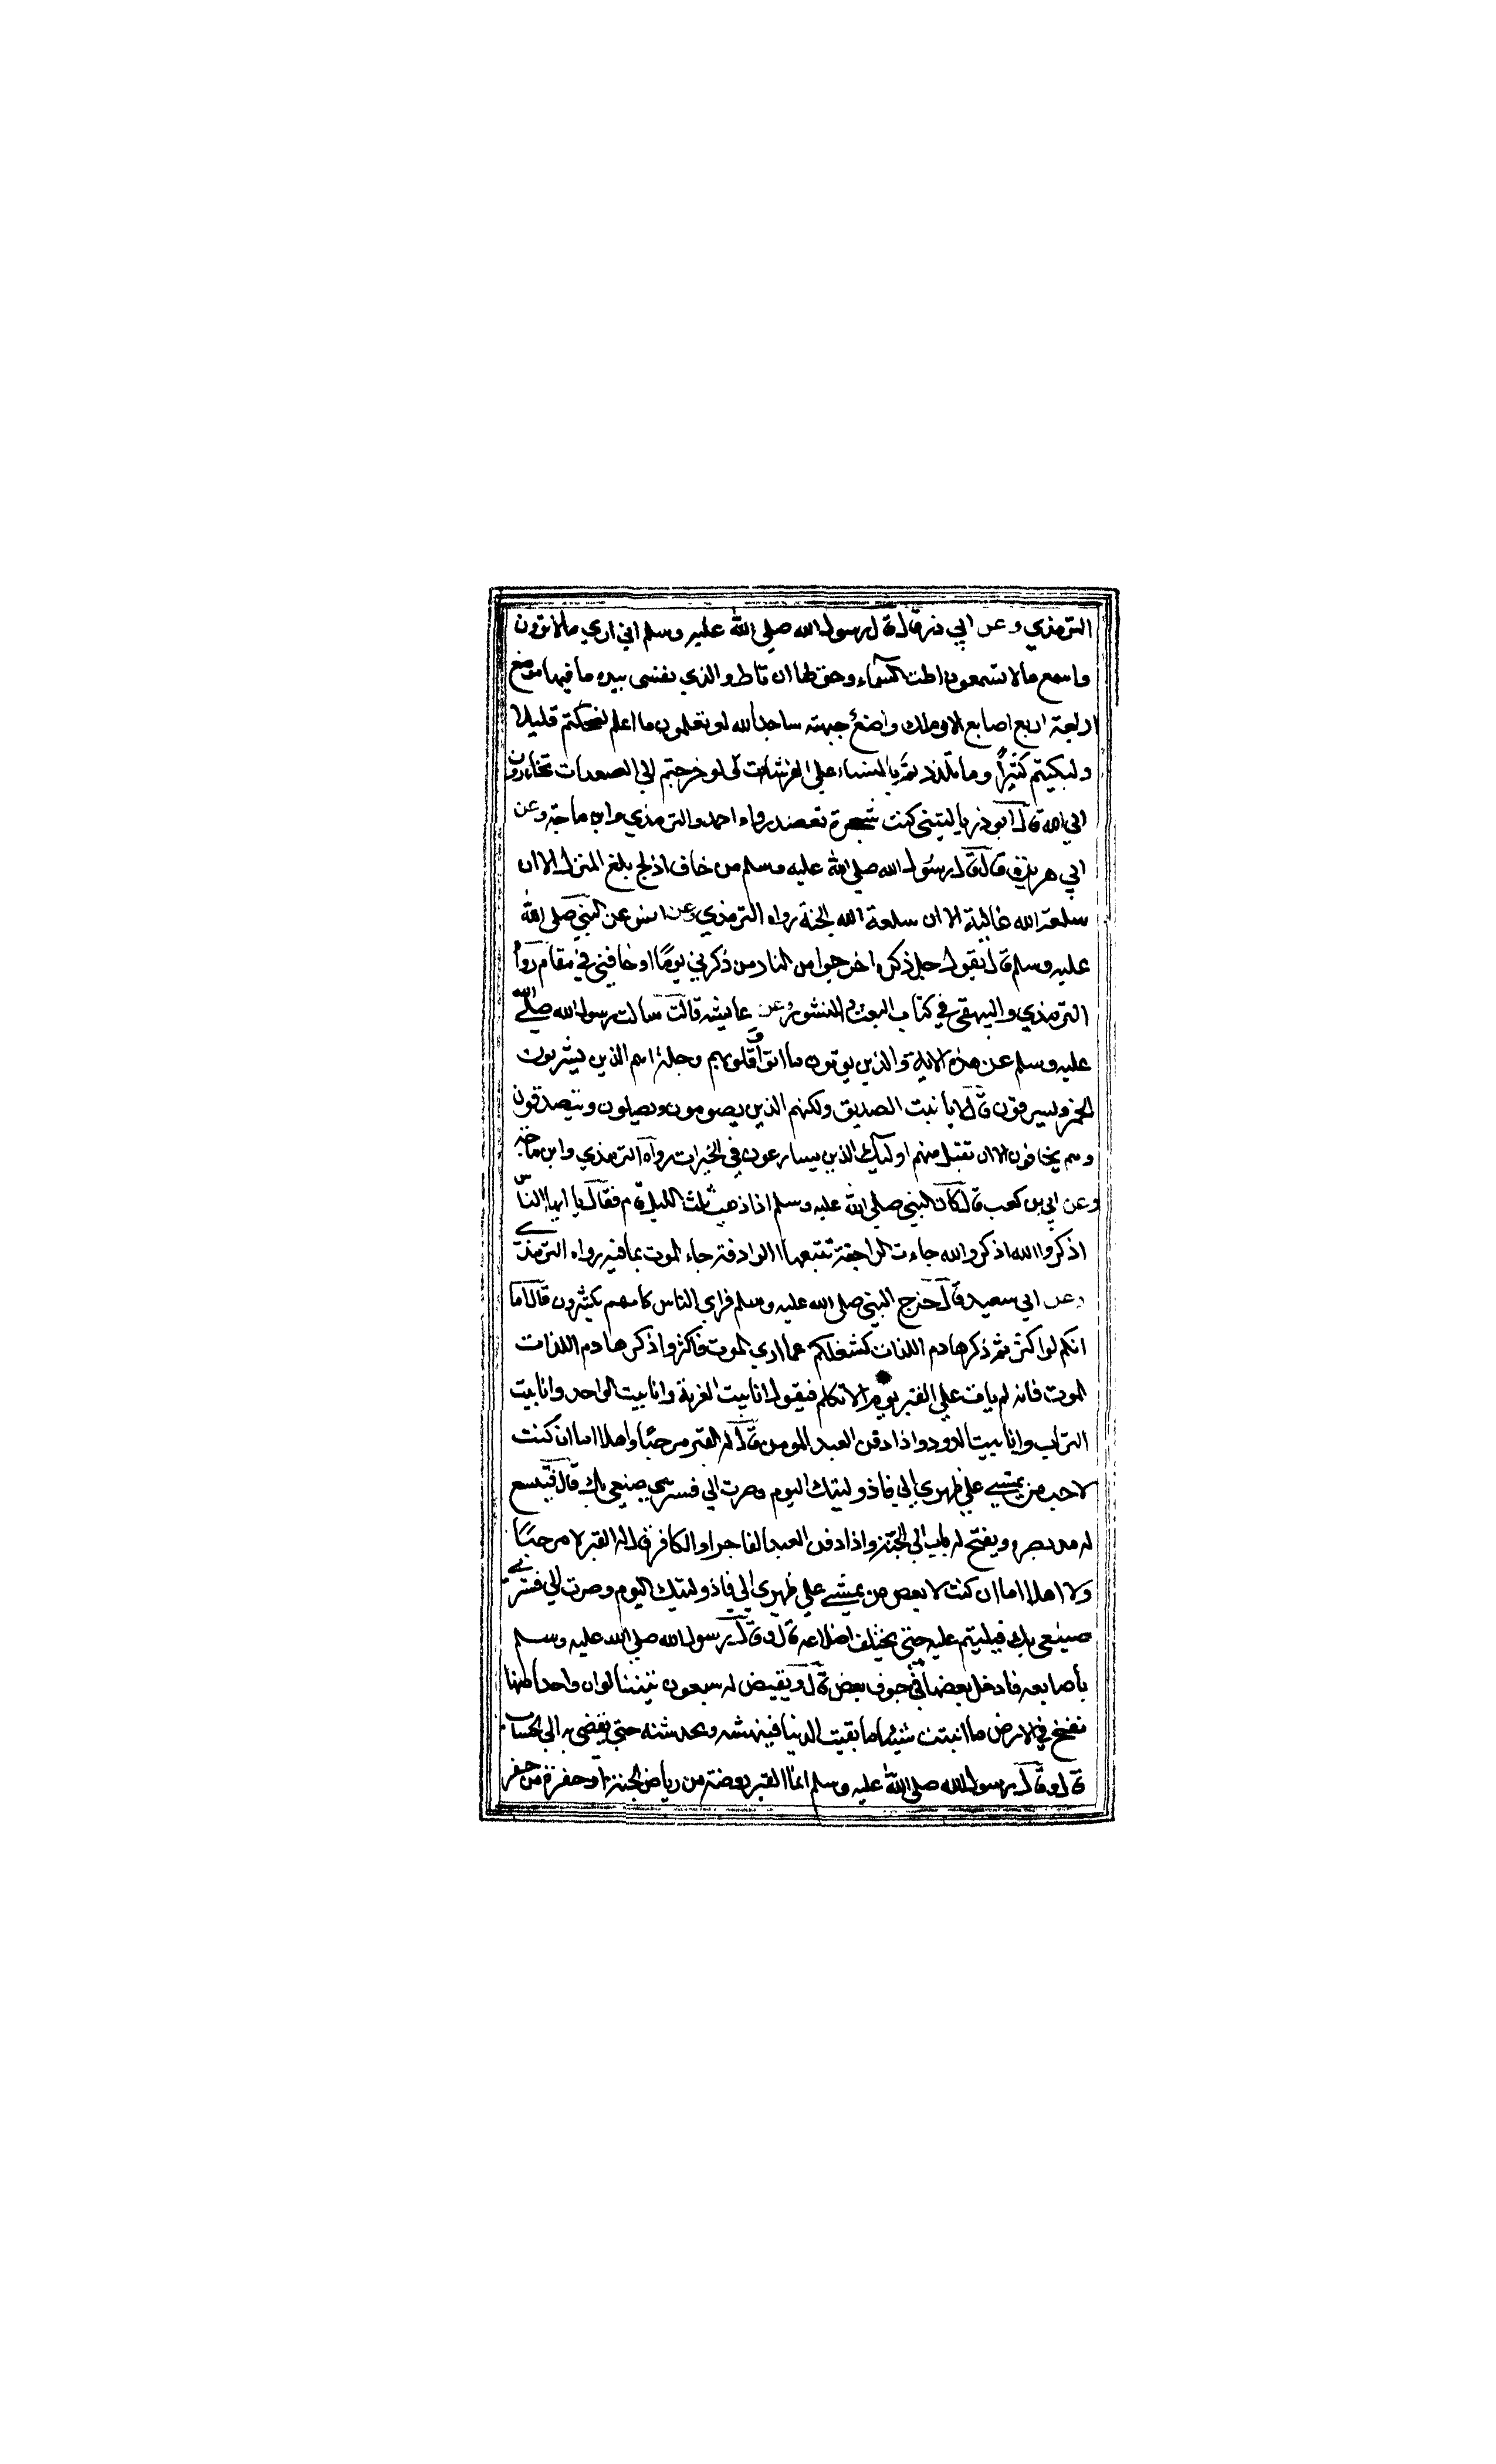 الترمذي وعن ابي ذر قال قال رسول الله صلى الله عليه وسلم اني اري ما لا ترون
واسمع ما لا تسمعون اطت السماء وحق لها ان تاط والذي نفسى بيده ما فيها موضع
اربعة اربع اصابع الا وملك واضع جبهته ساجدا لله لو تعلمون ما اعلم لضحكتم قليلا
ولبكيتم كثيرًا وما تلذذتم بالنساء علي الفرشات لو خرجتم الي الصعدات تجاءرون
الي الله قال ابوذر ياليتني كنت شجرة تعضد رواه احمد والترمذي وابن ماجة وعن
ابي هريرة قال قال رسول الله صلي الله عليه وسلم من خاف ادلج بلغ المنزل الا ان
سلعة الله غالية الا ان سلعة الله الجنة رواه الترمذي وعن انس عن النبي صلى الله
عليه وسلم قال يقول جل ذكره اخرجوا من النار من ذكرني يومًا او خافني في مقام رواه
الترمذي والبيهقي في كتاب البعث والنشور وعن عايشه قالت سالت رسول الله صلي الله
عليه وسلم عن هذه الاية والذين يوتون ما اتوا وقلوبهم وجلة اهم الذين يشربون
الخمر ويسرقون قال لا يا نبت الصديق ولكنهم الذين يصومون ويصلون ويتصدقون
وهم يخافون الا ان تقبل منهم اوليك الذين يسارعون في الخيرات رواه الترمذي وابن ماجة
وعن ابي بن كعب قال كان النبي صلي الله عليه وسلم اذا ذهب ثلث الليل قام فقال يا ايها الناس
اذكروا الله اذكروا الله جاءت الراجفة تتبعها الرادفة جاء الموت بما فيه رواه الترمذي
وعن ابي سعيد قال خرج النبي صلي الله عليه وسلم فراي الناس كانهم يكثرون قال اما
انكم لو اكثرتم ذكر هادم اللذات لشغلكم عما اري الموت فاكثروا ذكر هادم اللذات
الموت فانه لم يات علي القبر يوم الا تكلم فيقول انا بيت الغربة وانا بيت الواحد وانا بيت
التراب وانا بيت الدود واذا دفن العبد المومن قال له القبر مرحبًا واهلا اما ان كنت
لاحب من يمشي علي ظهري الي فاذ وليتك اليوم وصرت الي فستري صنيعي بك قال فيتسع
له مد بصره ويفتح له باب الي الجنة واذا دفن العبد الفاجر او الكافر قال له القبر لا مرحبًا
ولا اهلا اما ان كنت لابعض من يمشي علي ظهري الي فاذ وليتك اليوم وصرت الي فستري
صنيعي بك فيلتيم عليه حتي يختلف اضلاعه قال وقال رسول الله صلي الله عليه وسلم
بأصابعه فادخل بعضها في جوف بعض قال ويقيض له سبعون تنينا لو ان واحدا منها
نفخ في الارض ما انبتت شيئا ما بقيت الدنيا فينهشنه ويخدشنه حتي يفضي به الي الحساب
قال وقال رسول الله صلي الله عليه وسلم انما القبر روضة من رياض الجنة او حفرة من حفر